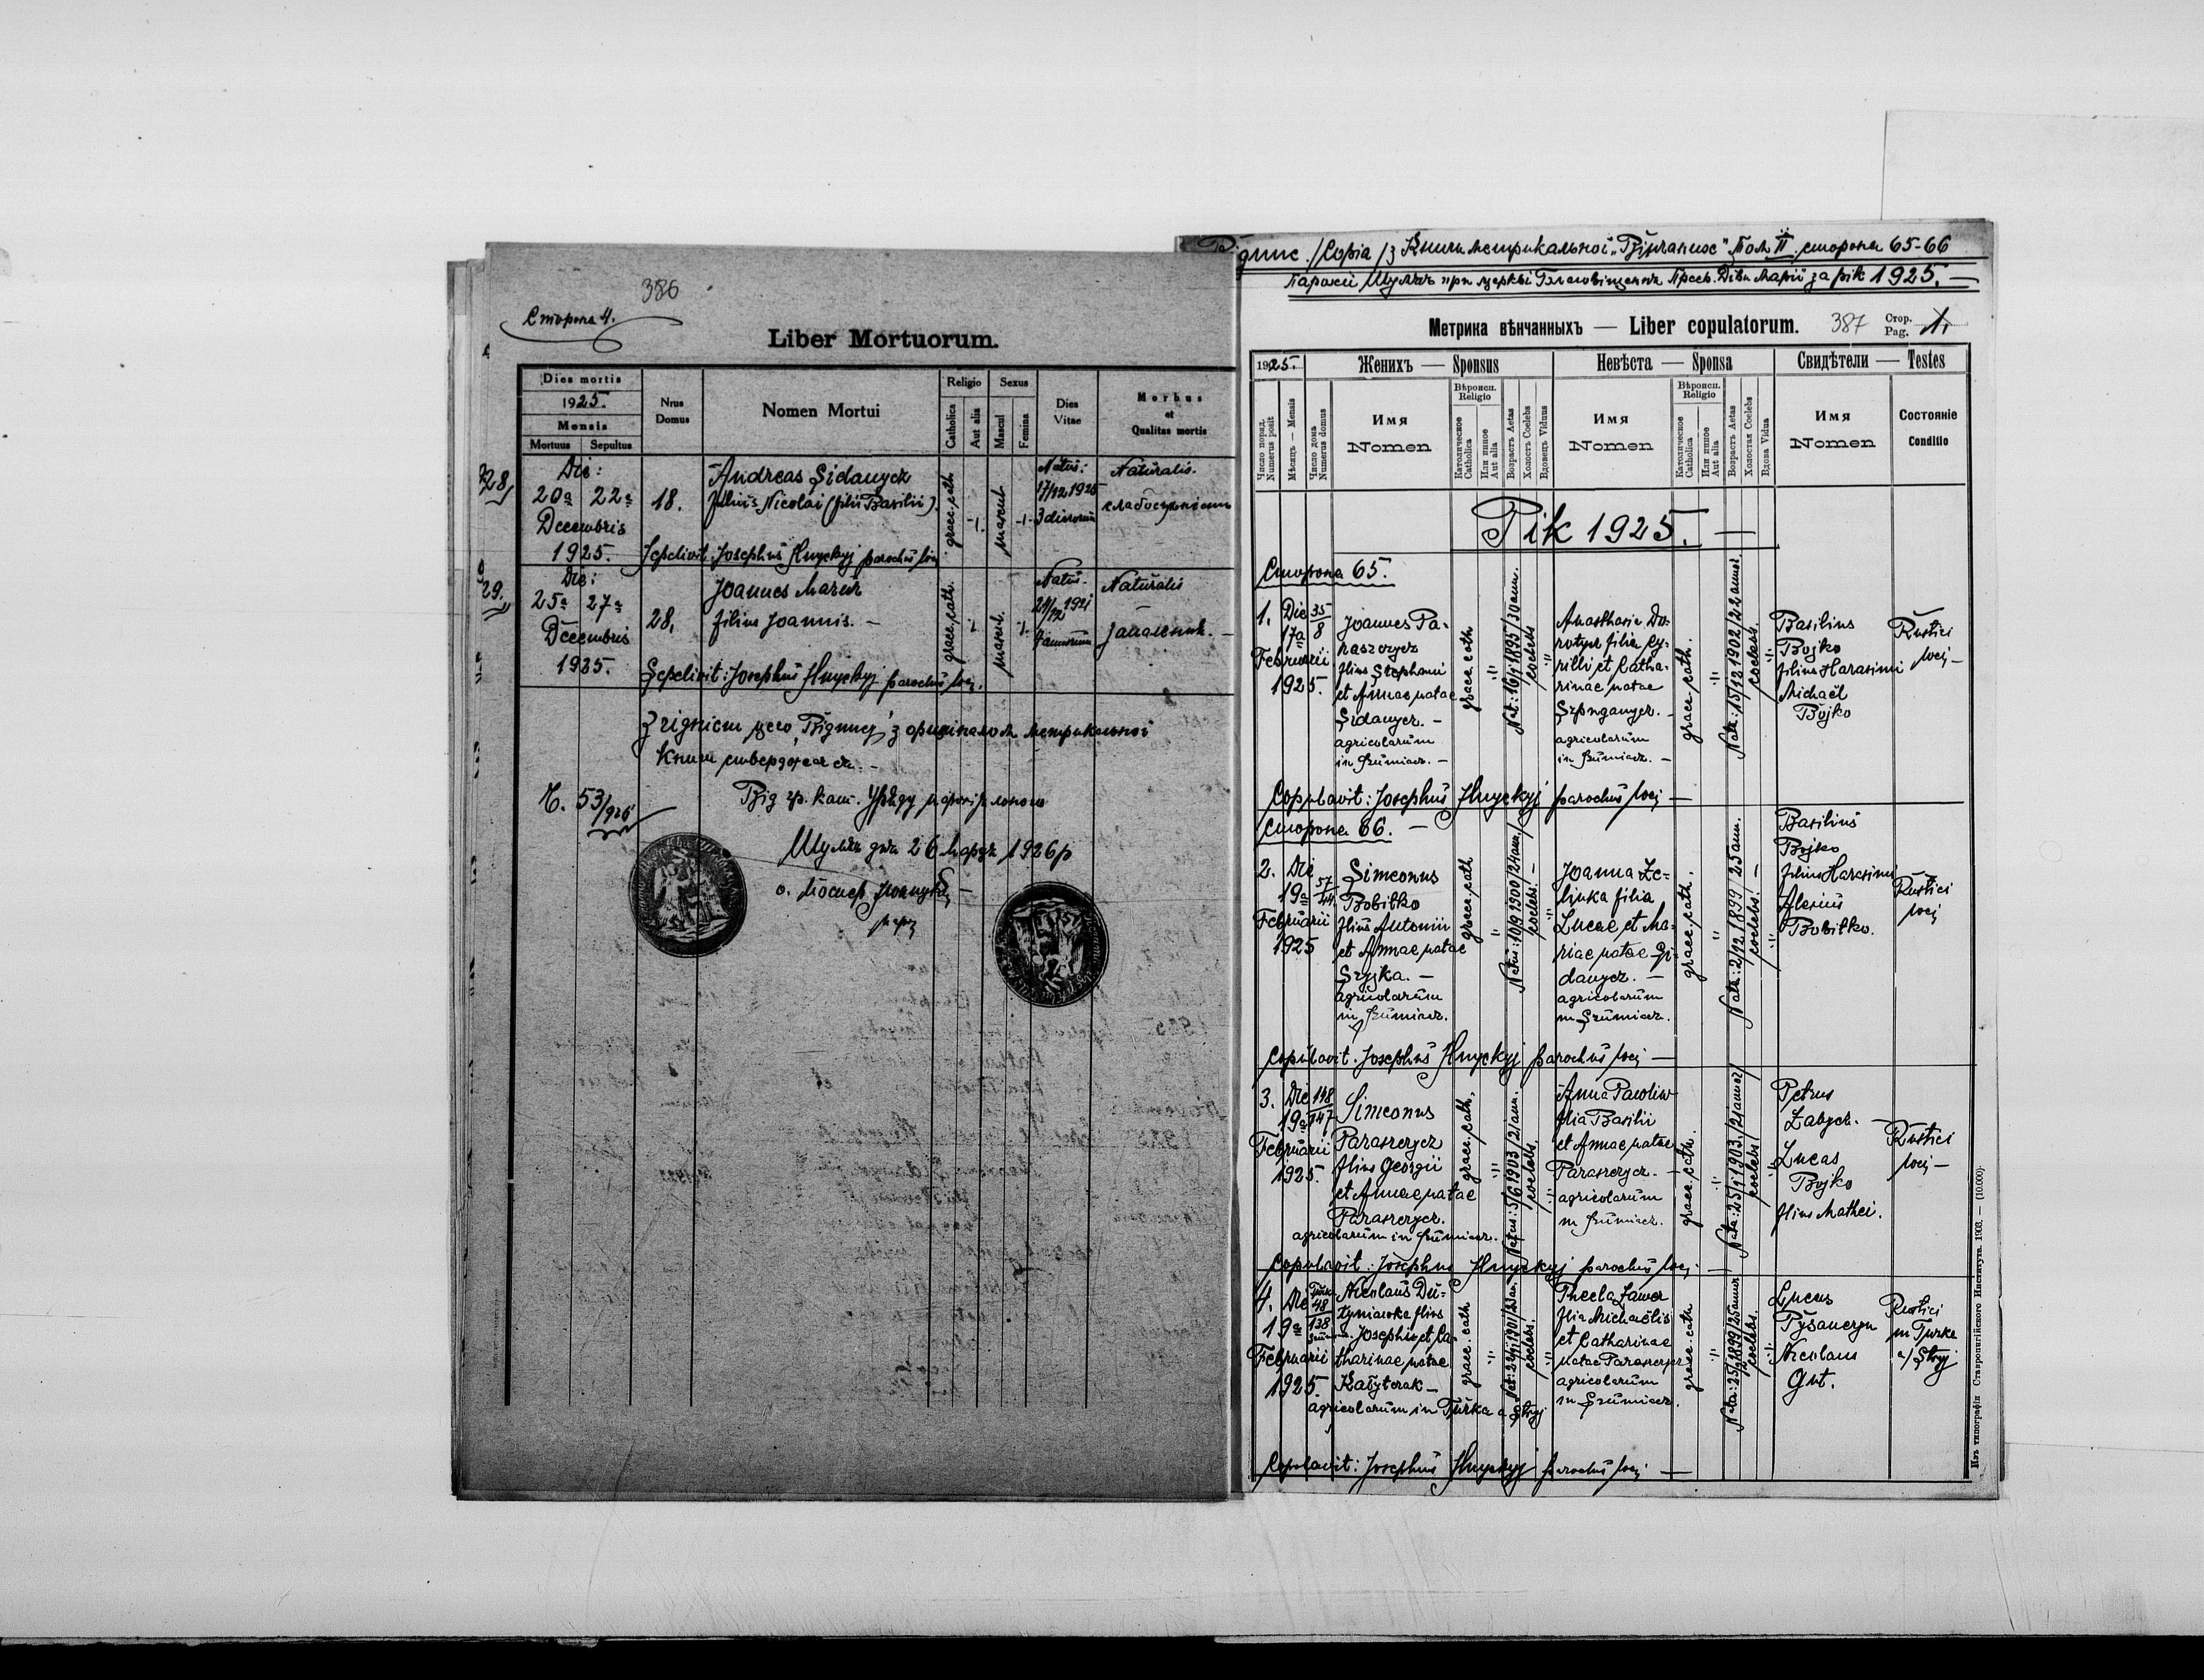 386
Сторона 4.
Liber Mortuorum.
Dies mortis
1925.
Mensis
Mortuus Sepultus
Nrus Domus
Nomen Mortui
Religio
Catholica
Aut alia
Sexus
Mascul
Femina
Dies Vitae
Morbus et Qualitas mortis
28,
Die:
20a 22a
Decembris
1925.
18.
Andreas Sidanycz
filius Nicolai (filii Basilii).
graec. cath
mascul
Natus:
17/12 1925
3 dierum
Naturalis.
Sepelivit: Josephus Hnyckyj parochus loci
29.
Die:
25a 27a
Decembris
1925.
28,
Joannes
filius Joannis. -
graec. cath.
mascul.
Natus.
21/12 1921
4 annorum
Naturalis
Sepelivit: Josephus Hnyckyj parochus loci.
метрикальної
книги стверджаєся. -
Ч. 53/926
Від гр. кат. Уряду парохіяльного
Шумяч дня 26 марця 1926 р
о. Йосиф
/Copia/ з Книги метрикальної „Вінчаних" Том II. сторона 65-66
Парохії Шумяч при церкві Благовіщення Пресв. Діви Марії за рік 1925. -
Метрика вѣнчанныхъ — Liber copulatorum.
387
Стор. Pag. 1.
1925.
Женихъ — Sponsus
Невѣста — Sponsa
Свидѣтели — Testes
Число поряд. Numerus posit
Мѣсяцъ — Mensis
Число дома Numerus domus
Имя Nomen
Вѣроисп. Religio
Католическое Catholica
Или инное Aut alia
Возрастъ Aetas
Холостъ Coelebs
Вдовецъ Viduus
Имя Nomen
Вѣроисп. Religio
Католическое Catholica
Или инное Aut alia
Возрастъ Aetas
Холостая Coelebs
Вдова Vidua
Имя Nomen
Состояніе Conditio
Рік 1925. -
Сторона 65.
1. Die
17a
Februarii
1925.
35/8
Joannes Pa-
raszczycz
filius Stephani
et Annae natae
Sidanycz. -
agricolarum
in Szumiacz. -
graec. cath
Nat: 16/1 1895/30 ann.
coelebs
Anasthasia Do-
rotycz filia Cy-
rilli et Catha-
rinae natae
agricolarum
in Szumiacz. -
graec. cath.
Nata: 15/12 1902/22 annor.
coelebs.
Basilius
Bojko
filius Harasimi
Michaël
Bojko
Rustici
loci -
Copulavit: Josephus Hnyckyj parochus loci -
Сторона 66. -
2. Die
19a
Februarii
1925
57/44
Simeonus
Bobitko
filius Antonii
et Annae natae
Szyjka. -
agricolarum
in Szumiacz.
graec. cath
Natus: 10/9 1900/24 ann.
coelebs. -
Joanna Ze-
linka filia
Lucae et Ma-
riae natae Si-
danycz. -
agricolarum
in Szumiacz.
graec. cath.
Nata: 2/12 1899 25 ann.
coelebs. -
Basilius
Bojko
filius Harasimi
Alexius
Bobitko.
Rustici
loci
Copulavit: Josephus Hnyckyj parochus loci -
3. Die
19a
Februarii
1925.
148/147
Simeonus
Paraszczycz
filius Georgii
et Annae natae
Paraszczycz.
agricolarum in Szumiacz.
graec. cath.
Natus: 5/6 1903/21 ann.
coelebs
Anna Pawliw
filia Basilii
et Annae natae
Paraszczycz. -
agricolarum
in Szumiacz.
graec. cath.
Nata: 25/1 1903./21 annor/
coelebs
Petrus
Zabycz. -
Lucas
Bojko
filius Mathei.
Rustici
loci -
Copulavit: Josephus Hnyckyj parochus loci -
4. Die
19a
Februarii
1925.
Turka
48/138
Nicolaus Du-
filius
Josephi et Ca-
tharinae natae
agricolarum in Turka a/ Stryj
graec. cath
coelebs.
Thecla Jawor
filia Michaëlis
et Catharinae
natae Paraszczycz
agricolarum
in Szumiacz.
graec. cath
coelebs.
Lucas
Nicolaus
Gut.
Rustici
in Turka
a/ Stryj
Copulavit: Josephus Hnyckyj parochus loci -
Изъ типографіи Ставропигійского Института. 1908. — (10.000).